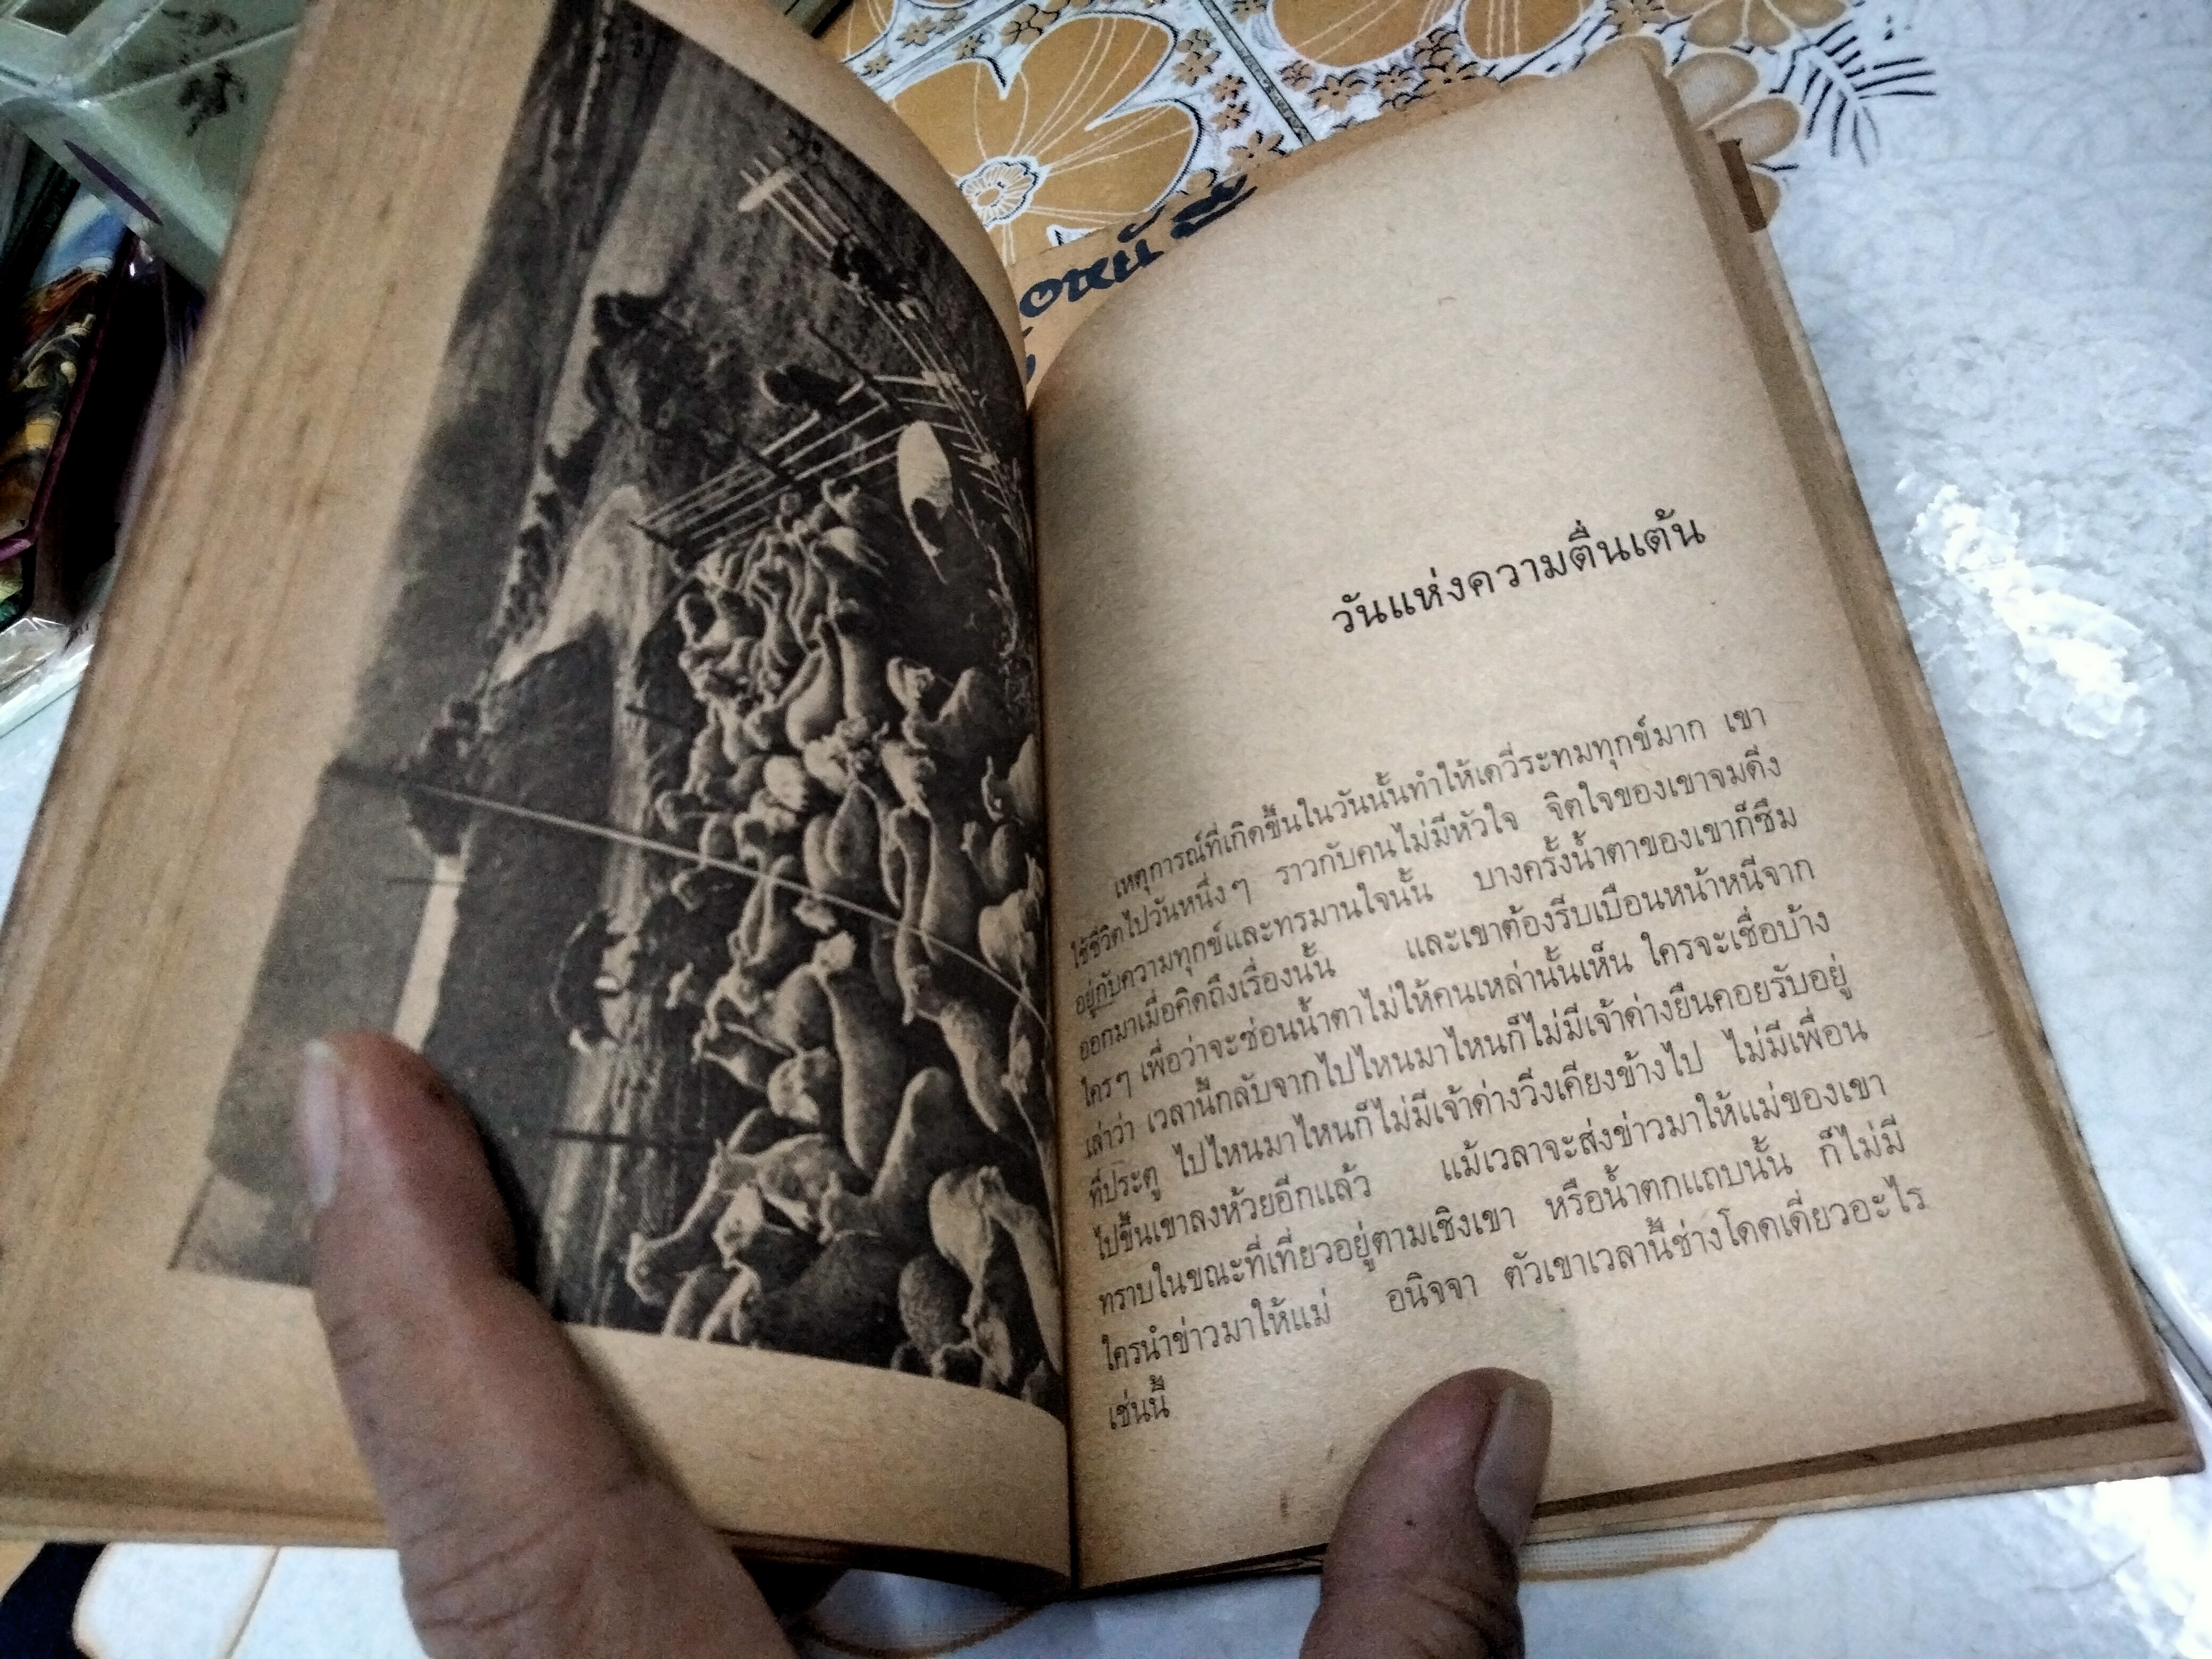 วันแห่งความตื่นเต้น
เหตุการณ์ที่เกิดขึ้นในวันนั้นทำให้เดวี่ระทมทุกข์มาก เขา
ใช้ชีวิตไปวันหนึ่งๆ ราวกับคนไม่มีหัวใจ จิตใจของเขาจมดิ่ง
อยู่กับความทุกข์และทรมานใจนั้น บางครั้งน้ำตาของเขาก็ซึม
ออกมาเมื่อคิดถึงเรื่องนั้น และเขาต้องรีบเบือนหน้าหนีจาก
ใครๆ เพื่อว่าจะซ่อนน้ำตาไม่ให้คนเหล่านั้นเห็น ใครจะเชื่อบ้าง
เล่าว่า เวลานี้กลับจากไปไหนมาไหนก็ไม่มีเจ้าด่างยืนคอยรับอยู่
ที่ประตู ไปไหนมาไหนก็ไม่มีเจ้าด่างวิ่งเคียงข้างไป ไม่มีเพื่อน
ไปขึ้นเขาลงห้วยอีกแล้ว แม้เวลาจะส่งข่าวมาให้แม่ของเขา
ทราบในขณะที่เที่ยวอยู่ตามเชิงเขา หรือน้ำตกแถบนั้น ก็ไม่มี
ใครนำข่าวมาให้แม่ อนิจจา ตัวเขาเวลานี้ช่างโดดเดี่ยวอะไร
เช่นนี้